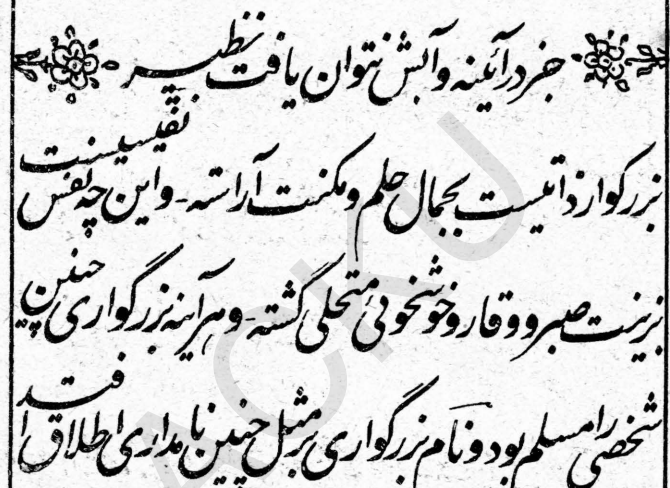 جز در آئینه و آبش نتوان یافت نظیر
بزرگوار ذاتیست بجمال حلم و مکنت آراسته - و این چه نفس نفیسیست
بزینت صبر و وقار و خوشخوئی متحلی گشته - و هر آینه بزرگواری چنین
شخصی را مسلم بود و نام بزرگواری بر مثل چنین نامداری اطلاق افتد
ACKU